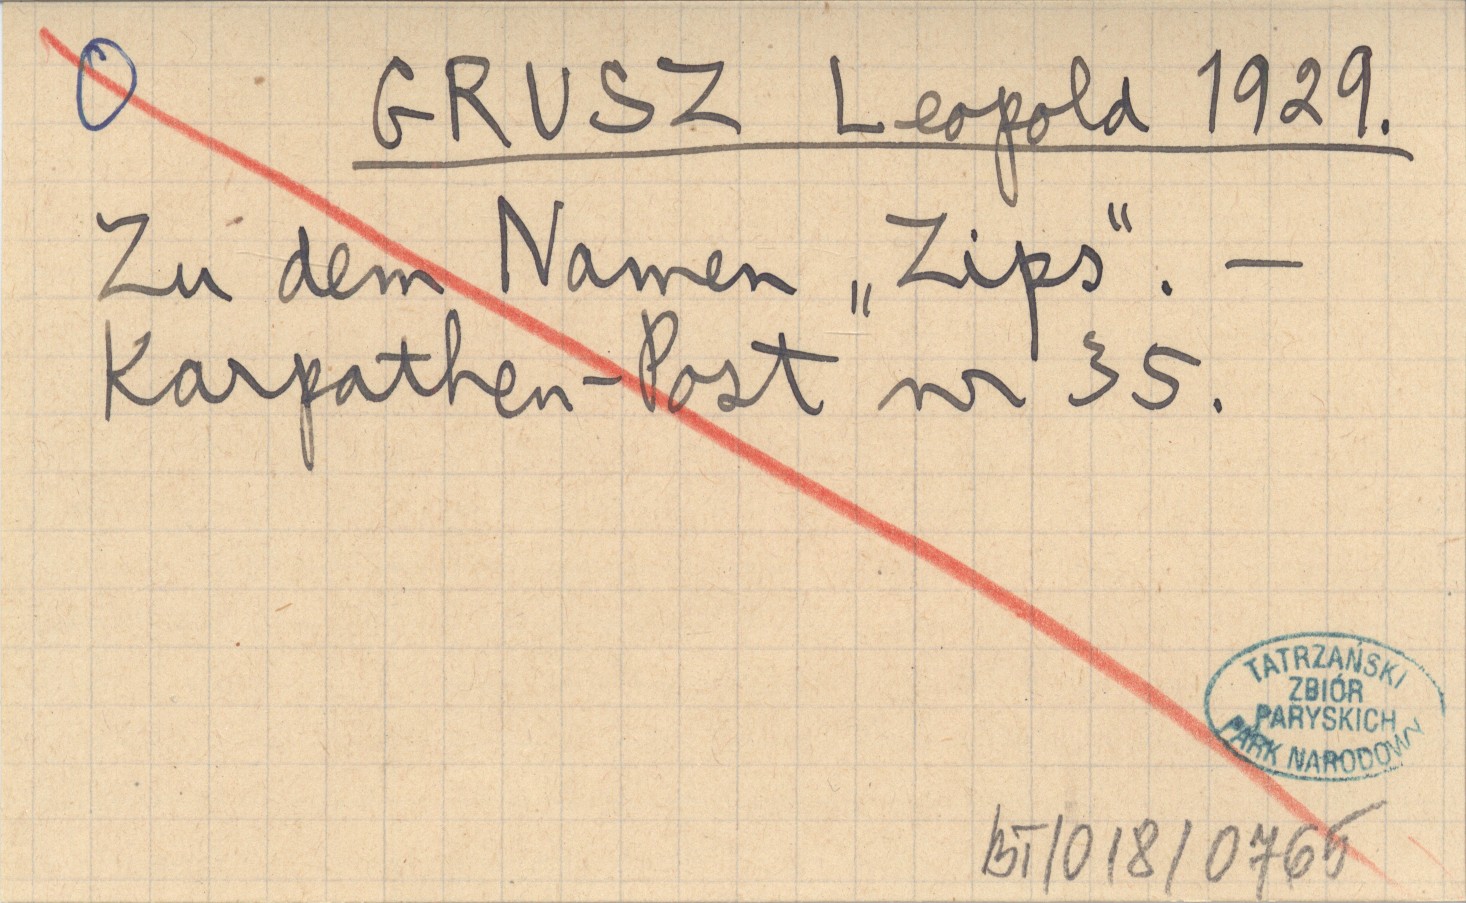 GRUSZ Leopold 1929.
Zu dem Namen „Zips“. —
Karpathen-Post nr 35.
TATRZAŃSKI
ZBIÓR
PARYSKICH
PARK NARODOWY
BT/018/0765